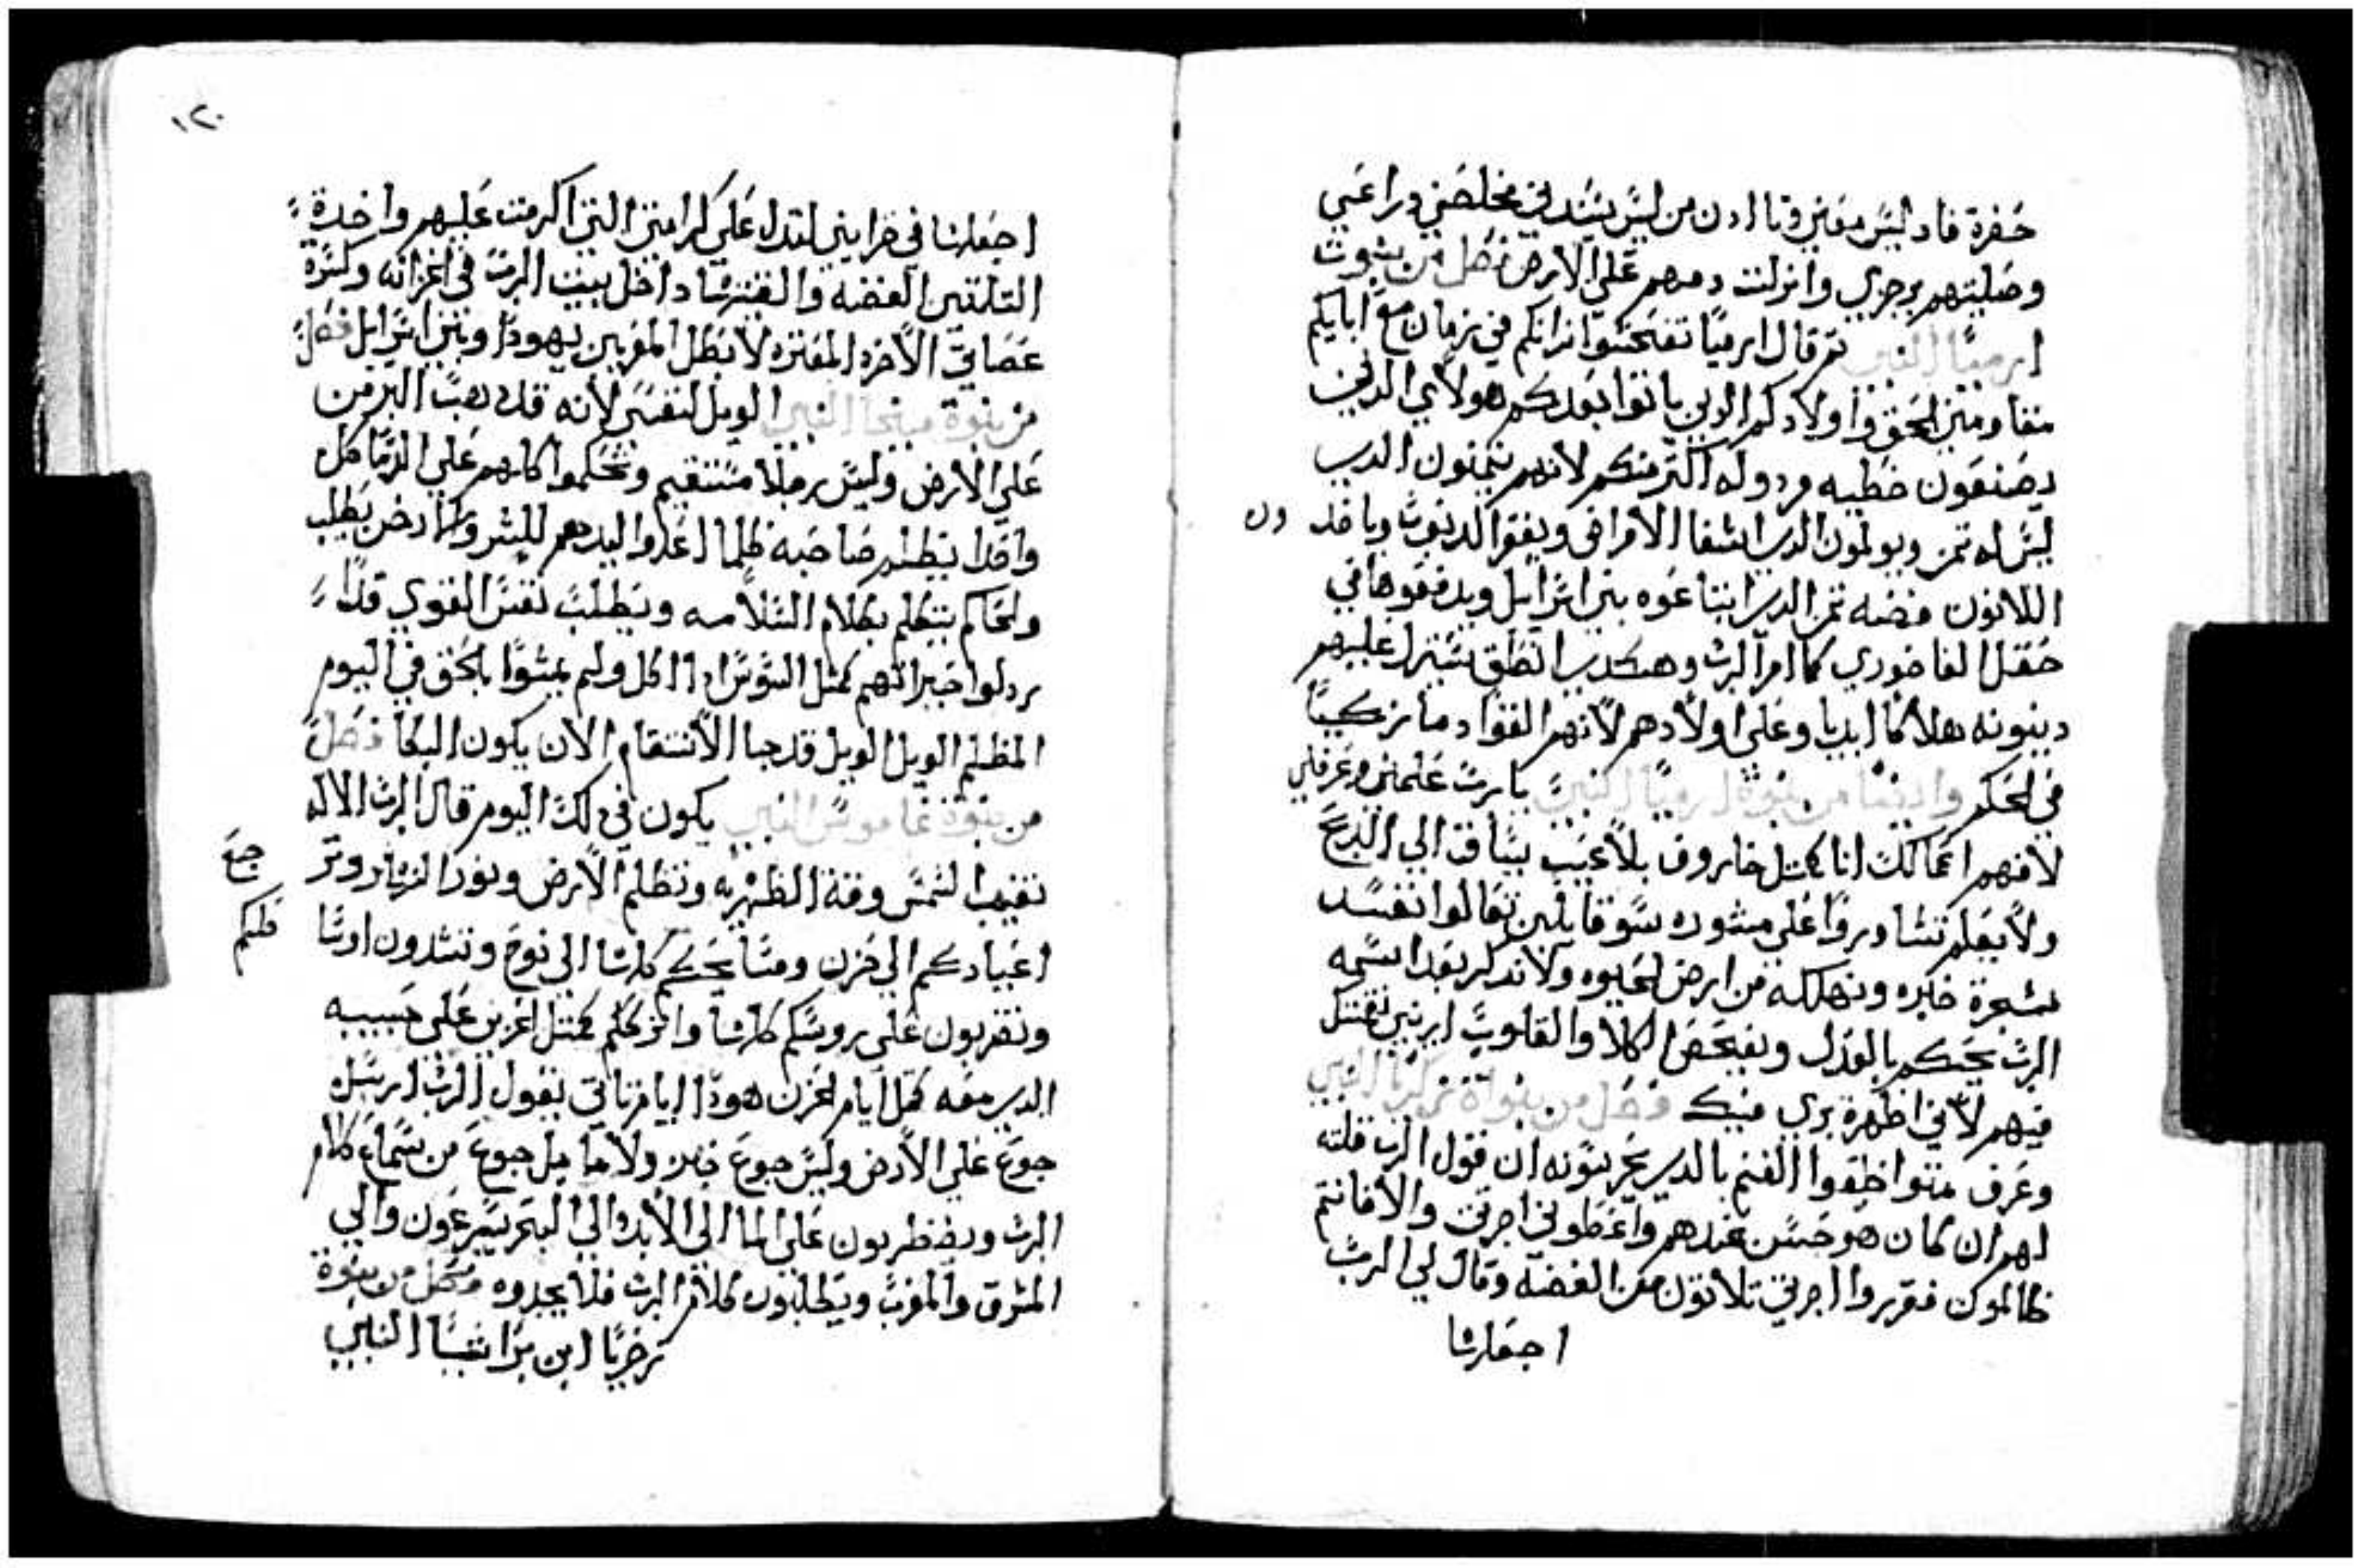 حفرة فاد ليس معين وتا ادن من ليس يسند في مخلصني وراعبي
وصليتهم برجزي وانزلت دمهم علي الارض فصل من نبوت
ارميا النبي تم قال ارميا لفشحور انراتكم في زمان مع ابايكم
مقاومين الحق واولادكم الدين ياتوا بعدكم هولاي الدين
يصنعون خطيه مردوله اكتر منكم لانهم يتمنون الدي
ليس له تمن ويولمون الدي اشفا الامراض ويغفر الدنوب وياخد
ون
اللاتون فضه تمن الدي ابتاعوه بني اسرايل ويدفعوها في
حقل الفاخوري كما امر الرب وهكدي انطق سينزل عليهم
دينونه هلاك ابديا وعلي اولادهم لانهم القوا دما زكيا
في الحكم وايضا من نبوة ارميا النبي يا رب علمني وعرفني
لافهم اعمالك انا كمتل خاروف بلا عيب يساق الي الدبح
ولا يعلم تشاوروا علي مشوره سو قايلين تعالوا نفسد
شجرة خبزه ونهلكه من ارض الحيوه ولا ندكر بعد اسمه
الرب يحكم بالعدل ويفحص الكلا والقلوب اريني نقمتك
فيهم لاني اظهرة بري منك فصل من نبواة زكريا النبي
وعرف متوا خلقوا الغنم بالدي يحرسونه ان قول الرب قلته
لهم ان كان هو حسن عندهم واعطوني اجرتي والا فانتم
ظالموكن فقرروا اجرتي تلاتون من الفضه وقال لي الرب
اجعلها
١٢٠
اجعلها في خزايني لتدل علي كرامتي التي اكرمت عليهم واخدة
التلتين الفضه والقيتها داخل بيت الرب في اخزانه وكسرة
عصاتي الاخره المفتره لابطل المقربين يهودا وبين اسرايل فصل
من نبوة ميخا النبي الويل لنفسي لانه قد دهب البر من
علي الارض وليس رجلا مستقيم وتحكموا كلهم علي الدما كل
واحدا يظلم صاحبه ظلما اعدوا ايديهم للشر والما دخر يطلب
والحاكم يتكلم بكلام السلامه ويطلب نفس القوي قدا
ردلوا خيراتهم كمتل السوس ادا اكل ولم يمشوا بالحق في اليوم
المظلم الويل الويل قد جا الانتقام الان يكون البكا فصل
من نبوة عاموس النبي يكون في دلك اليوم قال الرب الاله
تغيب الشمس وقتة الظهيره وتظلم الارض ونور النهار وترجع
اعيادكم الي حزن ومسابحكم كلها الي نوح وتشدون اوساطكم
وتقربون علي روسكم كلها واتركلم كمتل احزين علي حبيبه
الدي معه كمل ايام الحزن هودا ايام تاتي يقول الرب ارسل
جوع علي الارض وليس جوع خبز ولا ما بل جوع من سماع كلام
الرب ويضطربون علي الما الي الابد والي البحر يسرعون والي
المشرق والمغرب ويطلبون كلام الرب فلا يجدوه فصل من نبوة
زخريا ابن براشيا النبي